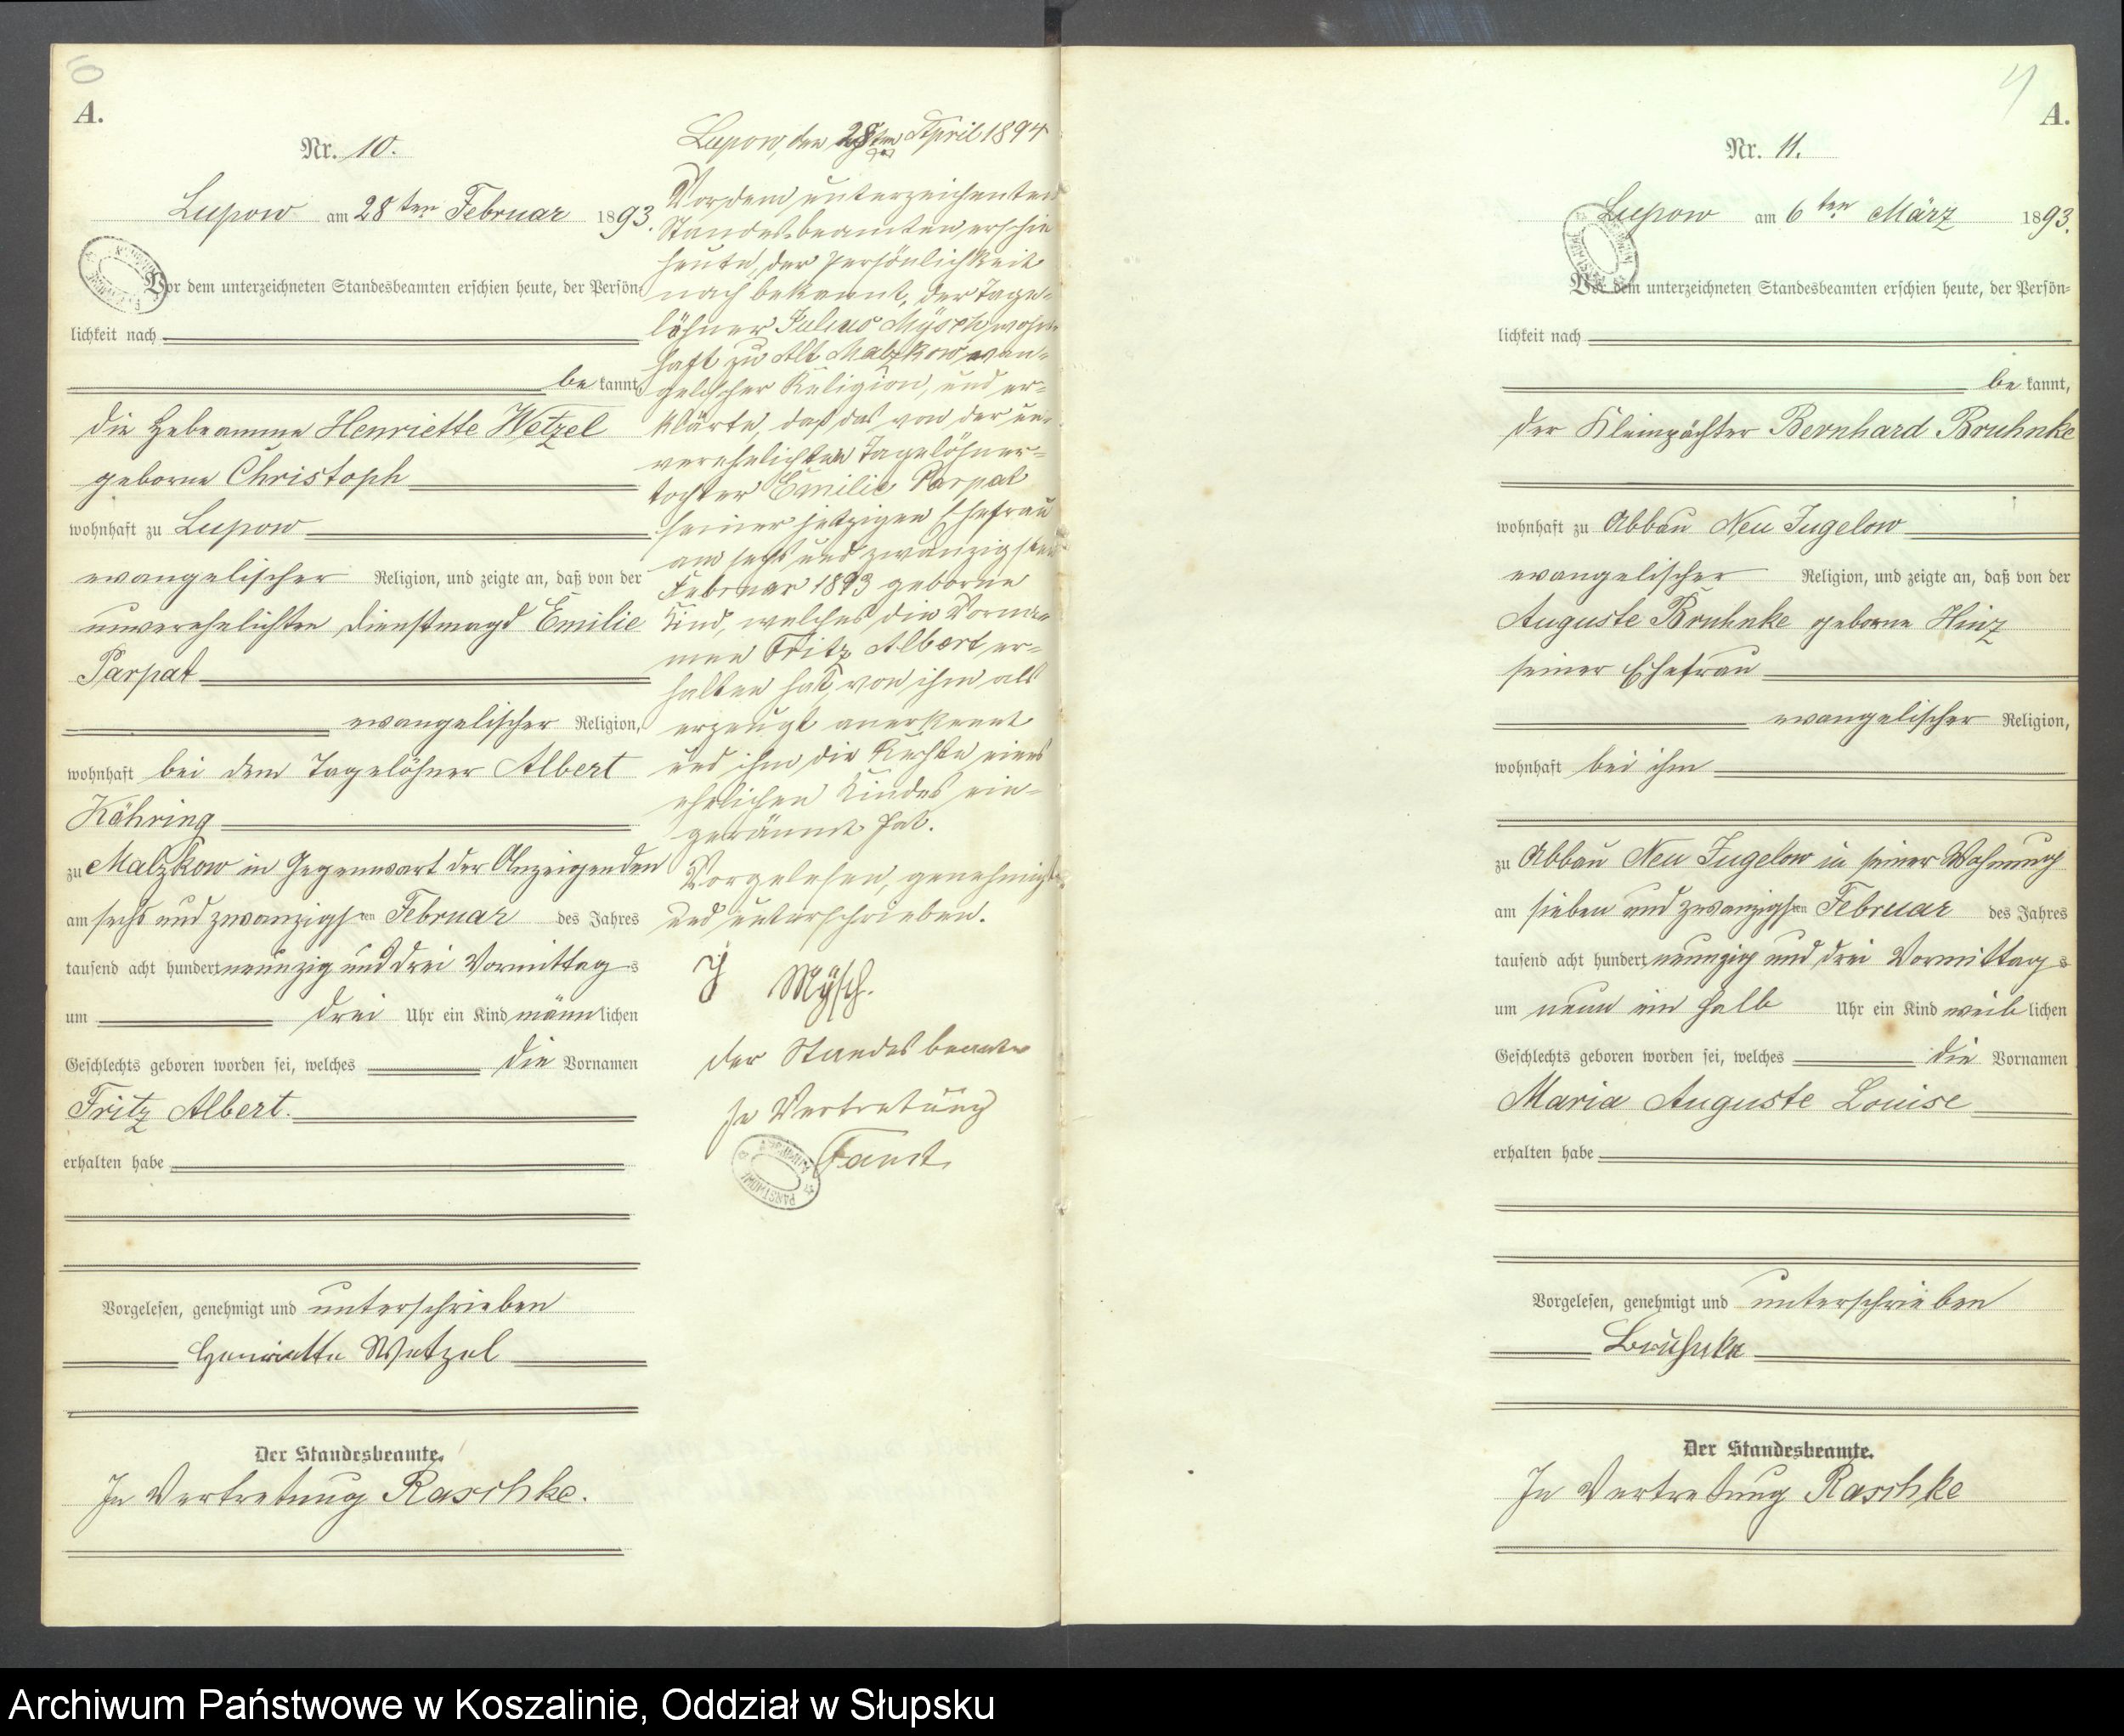 A.
Nr. 10.
Lupow am 28ten Februar 1893.
Vor dem unterzeichneten Standesbeamten erschien heute, der Persön-
lichkeit nach
be kannt,
die Hebeamme Henriette Wetzel
geborne Christoph
wohnhaft zu Lupow
evangelischer Religion, und zeigte an, daß von der
unverehelichten Dienstmagd Emilie
Parpat
evangelischer Religion,
wohnhaft bei dem Tagelöhner Albert
Köhring
zu Malzkow in Gegenwart der Anzeigenden
am sechs und zwanzigsten Februar des Jahres
tausend acht hundert neunzig und drei Vormittags
um drei Uhr ein Kind männlichen
Geschlechts geboren worden sei, welches die Vornamen
Fritz Albert.
erhalten habe
Vorgelesen, genehmigt und unterschrieben
Henriette Wetzel
Der Standesbeamte.
In Vertretung Raschke.
Lupow, den 28ten April 1894
Vor dem unterzeichneten
Standesbeamten erschien
heute, der Persönlichkeit
nach bekannt, der Tage-
löhner Julius Mysch, wohn-
haft zu Alt Malzkow, evan-
gelischer Religion, und er-
klärte, daß das von der un-
verehelichten Tagelöhner-
tochter Emilie Parpat
seiner jetzigen Ehefrau
am sechs und zwanzigsten
Februar 1893 geborne
Kind, welches die Vorna-
men Fritz Albert er-
halten hat, von ihm als
erzeugt anerkannt
und ihm die Rechte eines
ehelichen Kindes ein-
geräumt hat.
Vorgelesen, genehmigt
und unterschrieben.
Mysch.
Der Standesbeamte
In Vertretung
A.
Nr. 11.
Lupow am 6ten März 1893.
Vor dem unterzeichneten Standesbeamten erschien heute, der Persön-
lichkeit nach
be kannt,
der Kleinpächter Bernhard Bruhnke
wohnhaft zu Abbau Neu Jugelow
evangelischer Religion, und zeigte an, daß von der
Auguste Bruhnke geborne Hinz
seiner Ehefrau
evangelischer Religion,
wohnhaft bei ihm
zu Abbau Neu Jugelow in seiner Wohnung
am sieben und zwanzigsten Februar des Jahres
tausend acht hundert neunzig und drei Vormittags
um neun ein halb Uhr ein Kind weiblichen
Geschlechts geboren worden sei, welches die Vornamen
Maria Auguste Louise
erhalten habe
Vorgelesen, genehmigt und unterschrieben
Bruhnke
Der Standesbeamte.
In Vertretung Raschke
Archiwum Państwowe w Koszalinie, Oddział w Słupsku